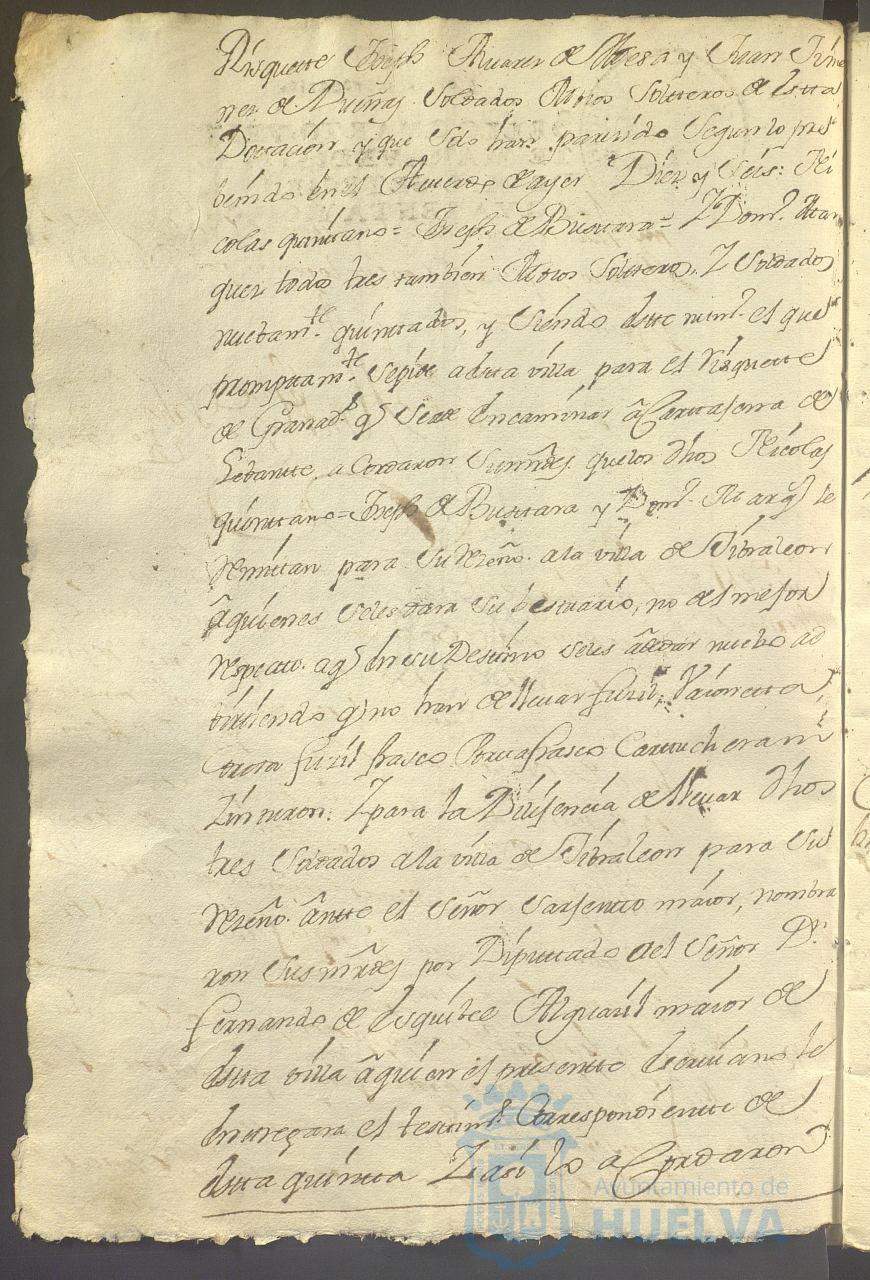 Risquette Joseph Alvarez de Mesa y Juan Jime
nez de Dueñas Soldados Mozos Solteros de esta
Dotación y que solo han parecido segun lo pre
benido en el Acuerdo de ayer Diez y Seis: Ni
colas quintano = Joseph de Bustara = Y Domº. Mar
quez todos tres tambien Mozos Solteros, Y Soldados
nuebamte. quintados, y siendo este numº. el que
promptamte. se pide a esta villa para el Risquette
de Granadª q se ade encaminar â Cartajena de
Lebante, acordaron sus mrdes. que los dhos Nicolas
quintano = Joseph de Bustara y Domº. Marqz se
remitan para su reseñº. a la villa de Jibraleon
âquienes se les dara su bestuario, no el mejor
respecto. a q en su Destino se les âdedar nuebo ad
birtiendo q no han de llevar fusil, Vaioneta,
fusil frasco Portafrasco Cartuchera ni
Zinturon: Y para la Dilijencia de llevar dhos
tres Soldados a la villa de Jibraleon para su
reseñº. ânte el Señor Sarjento maior, nombra
ron sus mrdes por Diputtado ael Señor Dn.
fernando de Esquibel Alguazil maior de
esta villa âquien el presente escrivano le
entregara el testimº. Correspondiente de
esta quinta Y asi lo aCordaron
Ayuntamiento de
HUELVA